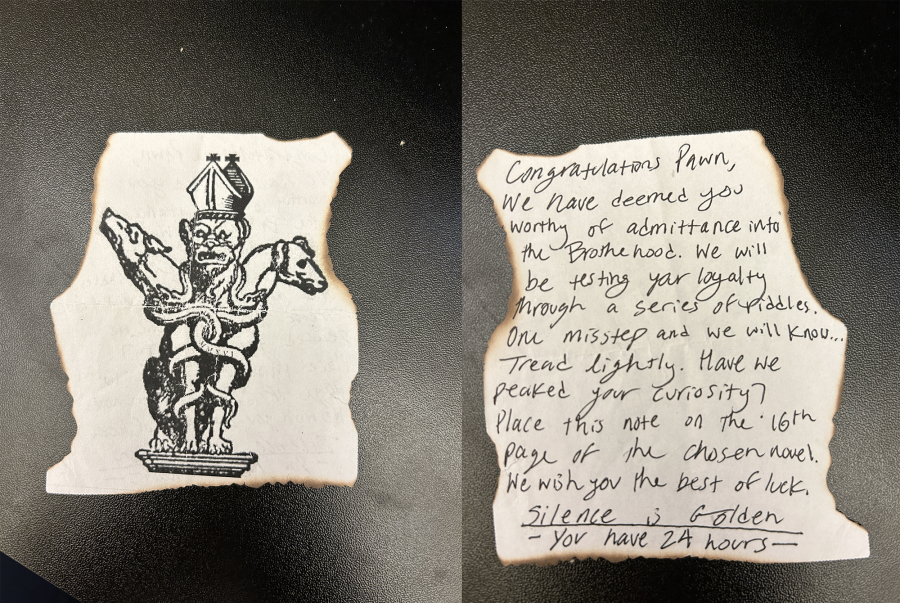 Congratulations Pawn,
We have deemed you
worthy of admittance into
the Brotherhood. We will
be testing your loyalty
through a series of riddles.
One misstep and we will know...
Tread lightly. Have we
peaked your curiosity?
Place this note on the 16th
page of the chosen novel.
We wish you the best of luck.
Silence is Golden
- You have 24 hours -